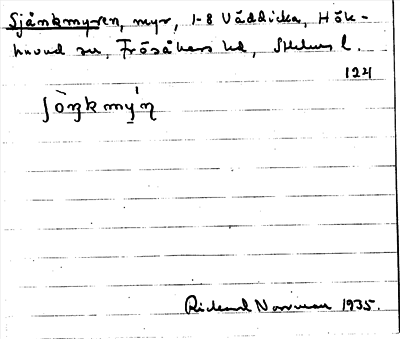 Sjånkmyren, myr, 1-8 Väddicka, Hök-
huvud sn, Frösåkers hd, Sthlms l.
124
ʃὸŋkmý̱n
Rickard Norrman 1935.